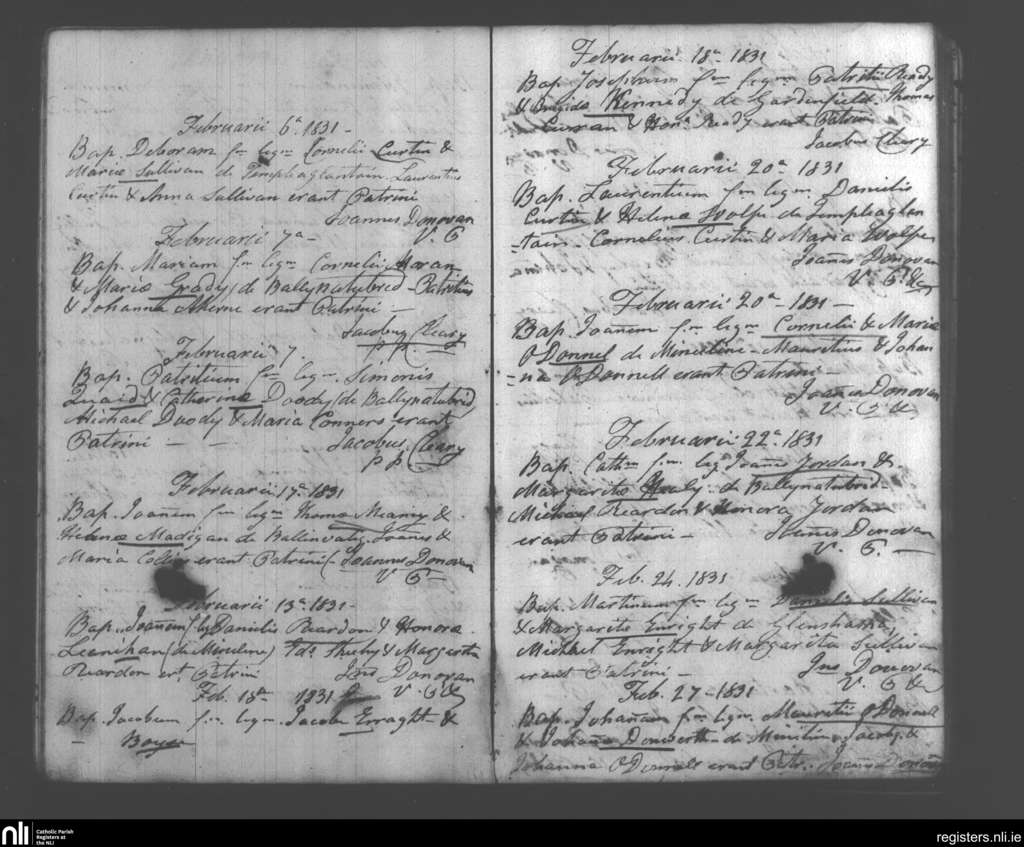 Februarii 6a 1831 -
Bap. Deboram fm legm Cornelii Curtin &
Mariæ Sullivan de Templeaglantain Laurentius
Curtin & Anna Sullivan erant Patrini
Joannes Donovan
V. G
Februarii 7a -
Bap. Mariam fm legm Cornelii Moran
& Mariæ Grady (de Ballynatubrid - Patritius
& Johanna Aherne erant Patrini -
Jacobus Cleary
p p
Februarii 7.
Bap. Patritium fm legm Simonis
Quaid & Catherinæ Doody (de Ballynatubrid
Michael Doody & Maria Connors erant
Patrini - -
Jacobus Cleary
p p
Februarii 17a 1831
Bap. Joañem fm legm Thomæ Meany &
Helenæ Madigan de Joañes &
Maria Collins erant Patrini (- Joannes Donovan
V G -
Februarii 13a 1831 -
Bap. Joañem f lg Danielis Reardon & Honora
Leenihan (de Minuline) & Margarita
Reardon ert Patrini Jns Donovan
Feb. 18a 1831 V. G &
Bap. Jacobum fm legm Jacobi Enraght &
Boyce
Februarii 18a 1831
Bap Josephum fm legm Patritii Ready
& Brigida Kennedy de Gardenfield. Thomas
Curran & Hona Ready erant Patrini
Jacobus Cleary
Februarii 20a 1831
Bap. Laurentium fm legm Danielis
Curtin & Helenæ Wolfe de Templeaglen
-tain - Cornelius Curtin & Maria Wolfe
Joañes Donovan
V. G &c
Februarii 20a 1831 -
Bap. Joanem fm legm Cornelii & Mariæ
O Donnel de Minuline - Mauritius & Johan
-na O Donnell erant Patrini -
Joañes Donovan
V. G &
Februarii 22a 1831
Bap. Cathm fm legm Joañis Jordan &
Margaritæ Healy de Ballynatubrid -
Michael Reardon & Honora Jordan
erant Patrini -
Donovan
V. G. -
Feb. 24. 1831
Bap. Martinum fm legm Danielis Sullivan
& Margaritæ Enright de Glenshasha,
Michael Enright & Margarita Sullivan
erant Patrini - Jns Donovan
V. G &
Feb. 27 - 1831
Bap. Johañam fm legm Mauritii O Donnell
& Johaña de Minuline &
Johanna O Donnell erant Patr. Joañes Donovan
nli
Catholic Parish
Registers at
the NLI
registers.nli.ie